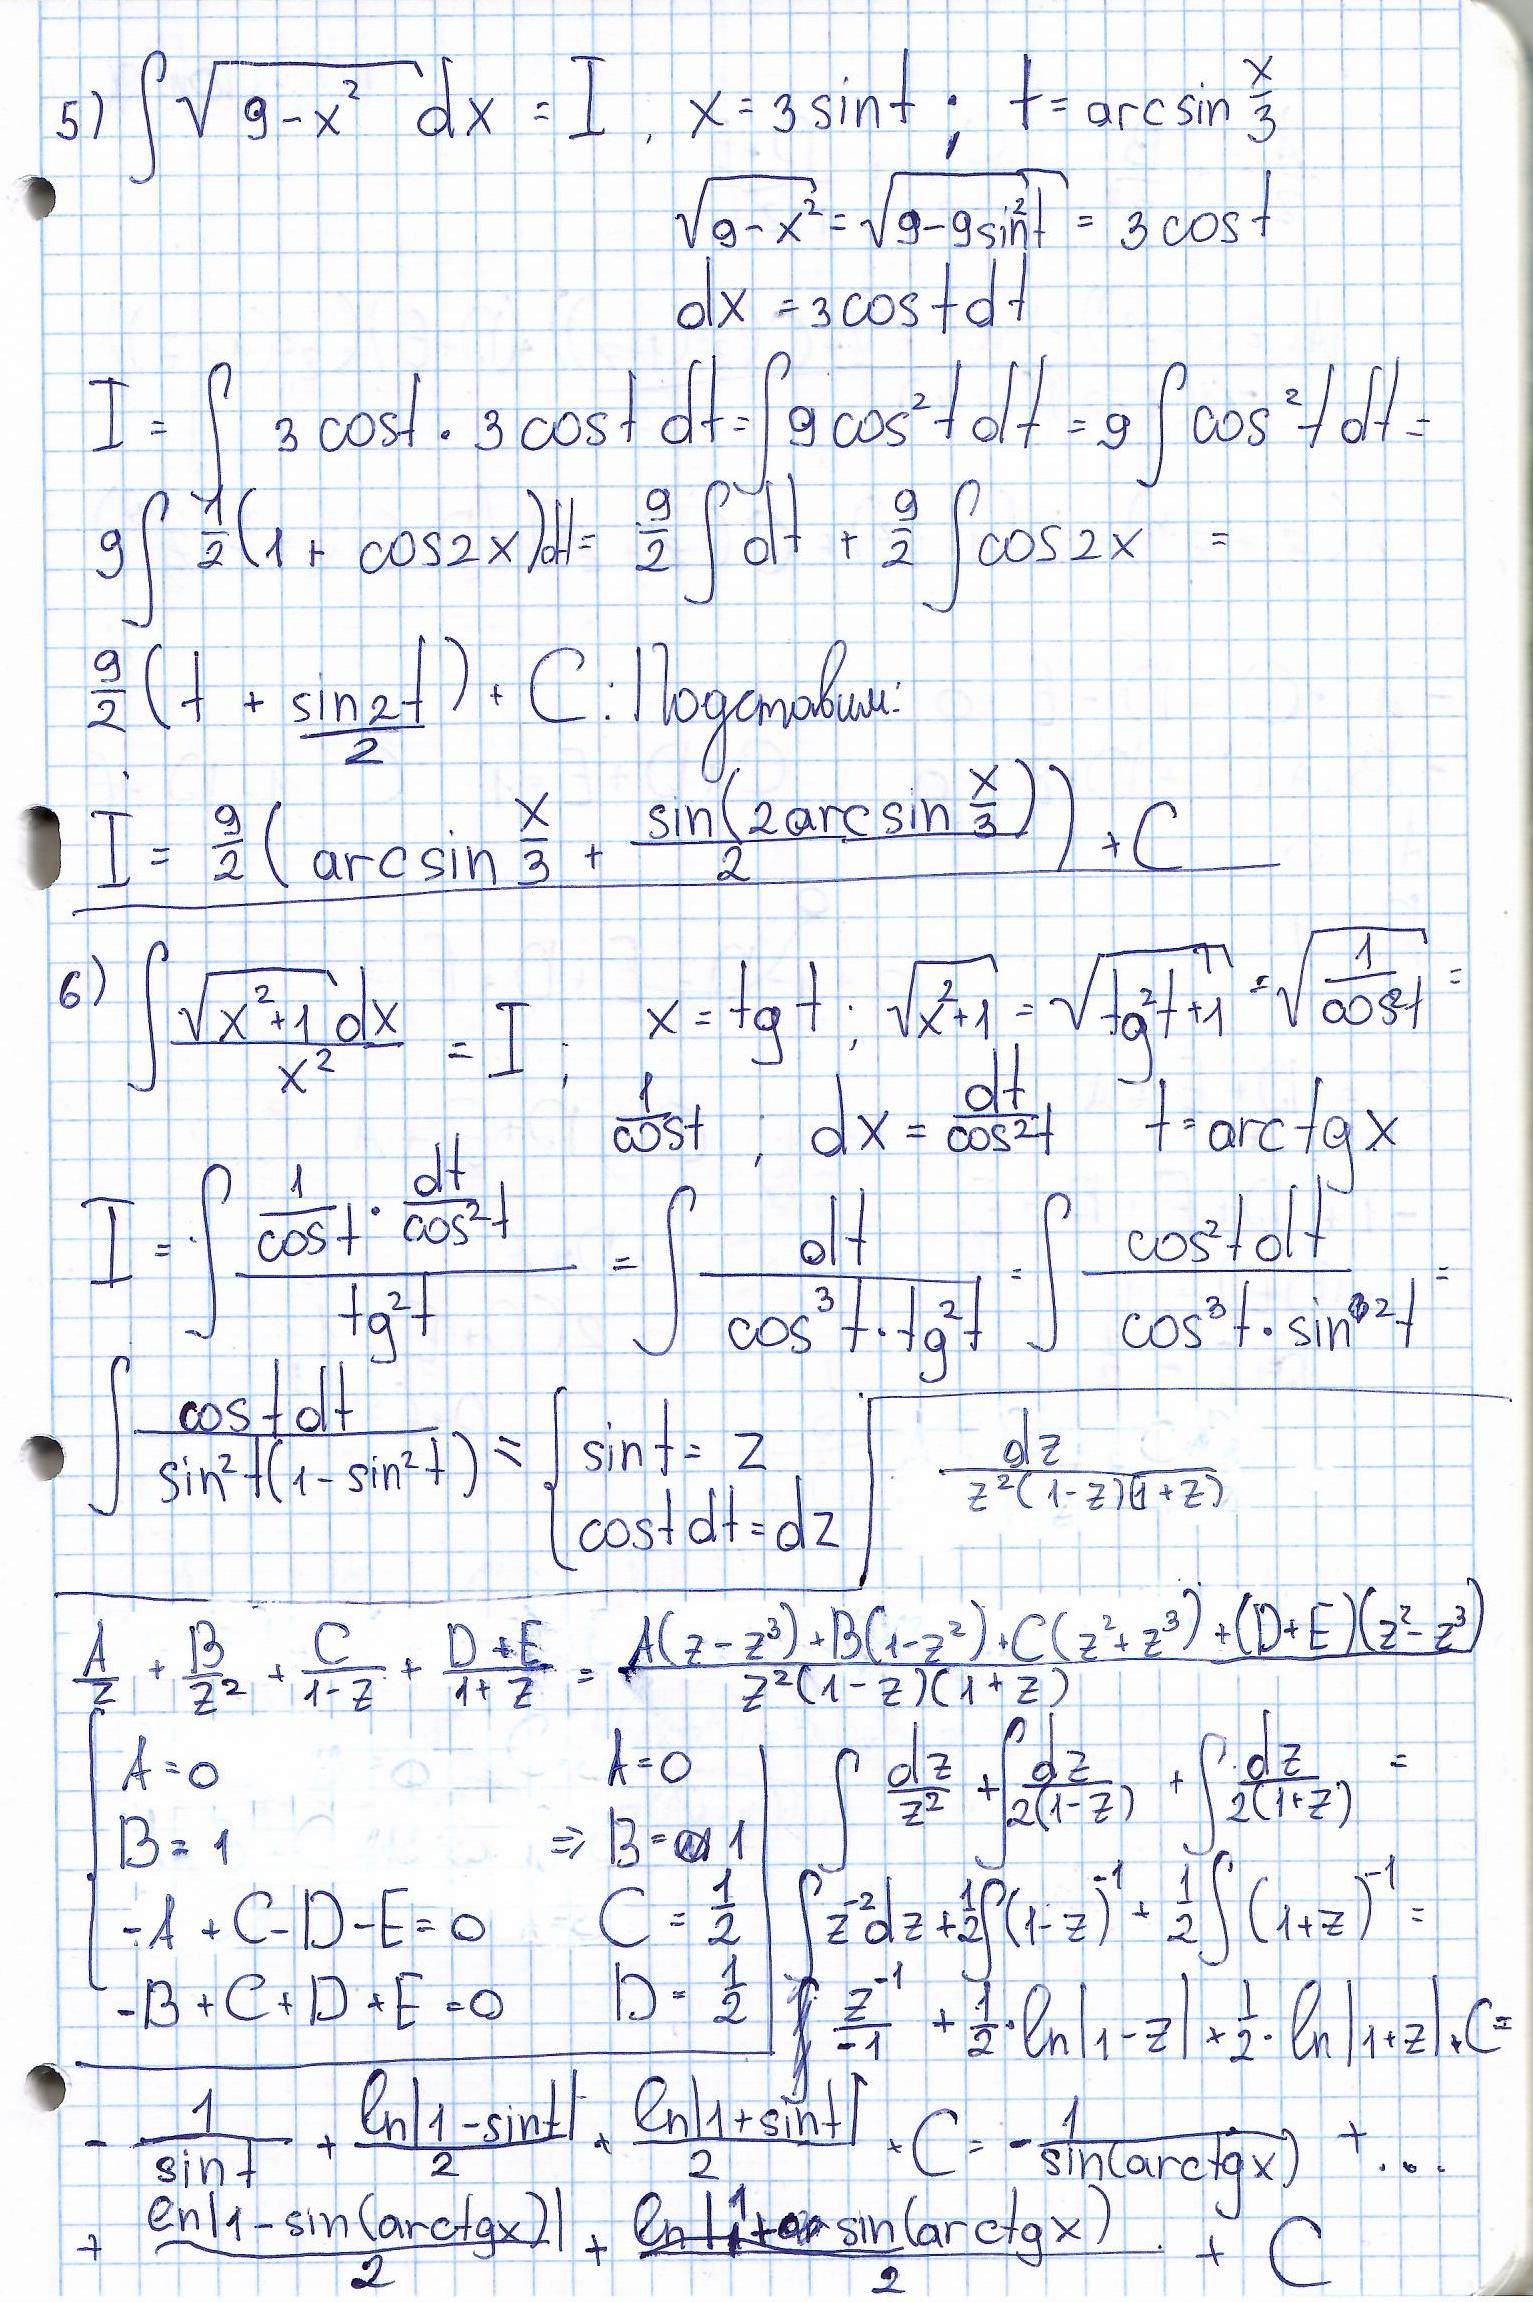 5) ∫ √(9-x²) dx = I, x = 3 sin t ; t = arcsin x/3
√(9-x²) = √(9-9sin²t) = 3 cos t
dx = 3 cos t dt
I = ∫ 3 cos t · 3 cos t dt = ∫ 9 cos² t dt = 9 ∫ cos² t dt =
9 ∫ 1/2 (1 + cos 2x) dt = 9/2 ∫ dt + 9/2 ∫ cos 2x =
9/2 (t + sin 2t / 2) + C : Подставим:
I = 9/2 (arcsin x/3 + sin(2 arcsin x/3) / 2) + C
6) ∫ √(x²+1) dx / x² = I ; x = tg t ; √(x²+1) = √(tg²t+1) = √(1/cos²t) =
1/cos t ; dx = dt/cos²t t = arctg x
I = ∫ (1/cos t · dt/cos²t) / tg²t = ∫ dt / (cos³t · tg²t) = ∫ cos²t dt / (cos³t · sin²t) =
∫ cos t dt / (sin²t (1 - sin²t)) = { sin t = z
cos t dt = dz
dz / (z²(1-z)(1+z))
A/z + B/z² + C/(1-z) + (D+E)/(1+z) = (A(z-z³) + B(1-z²) + C(z²+z³) + (D+E)(z²-z³)) / (z²(1-z)(1+z))
{ A = 0
B = 1
-A + C - D - E = 0
-B + C + D + E = 0
⇒ A = 0
B = 1
C = 1/2
D = 1/2
∫ dz/z² + ∫ dz/(2(1-z)) + ∫ dz/(2(1+z)) =
∫ z⁻² dz + 1/2 ∫ (1-z)⁻¹ + 1/2 ∫ (1+z)⁻¹ =
z⁻¹/-1 + 1/2 · ln|1-z| + 1/2 · ln|1+z| + C =
- 1/sin t + ln|1-sin t|/2 + ln|1+sin t|/2 + C = - 1/sin(arctg x) + ...
+ ln|1-sin(arctg x)|/2 + ln|1+sin(arctg x)/2 + C